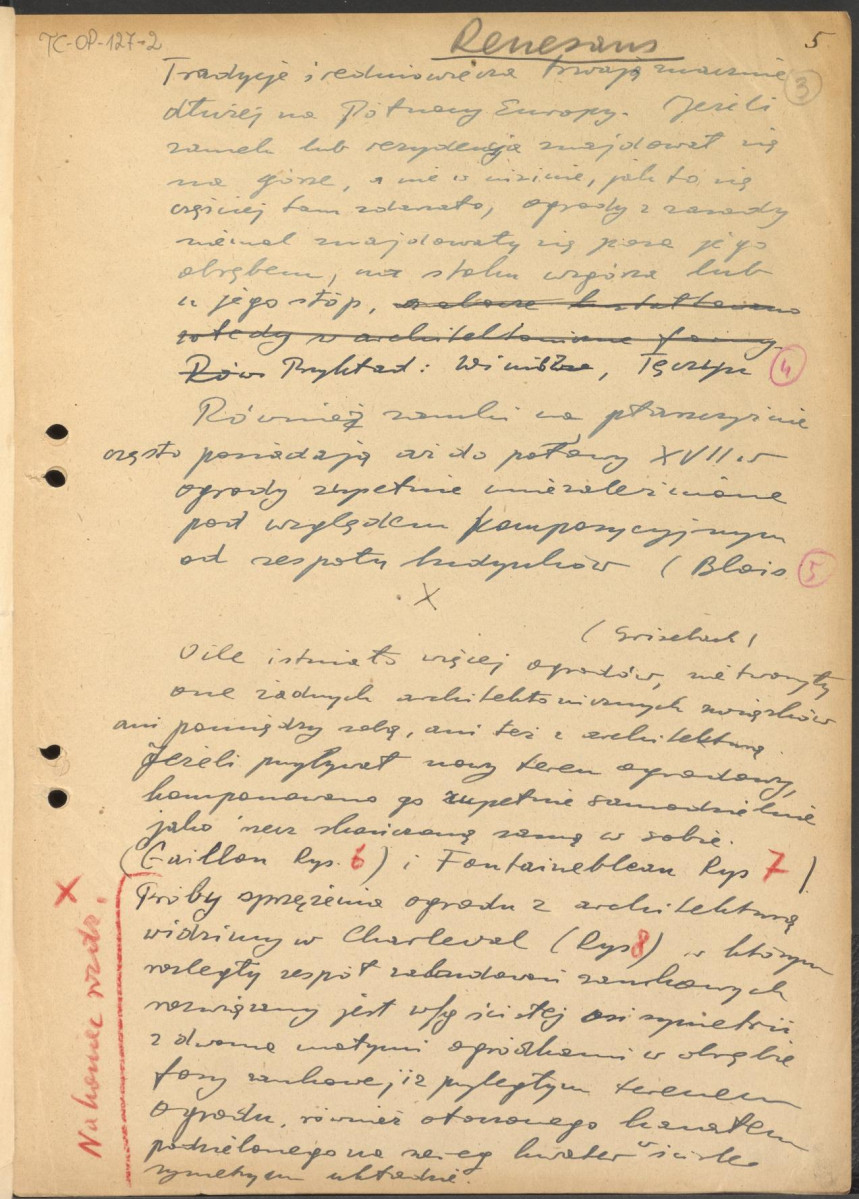 TC-OP-127-2
Renesans
5
Tradycje średniowiecza trwają znacznie
3
dłużej na Północy Europy. Jeżeli
zamek lub rezydencja znajdował się
na górze, a nie w nizinie, jak to się
częściej tam zdarzało, ogrody z zasady
niemal znajdowały się poza jego
obrębem, na stoku wzgórza lub
u jego stóp, a obszar kształtowano
wtedy w architektoniczne formy.
Rów Przykład: Wiśnicz, Tęczyn 4
Również zamki na płaszczyźnie
często posiadają aż do połowy XVII w
ogrody zupełnie niezależnione
pod względem kompozycyjnym
od zespołu budynków ( Blois 5
X
( Grisebach )
O ile istniało więcej ogrodów, nie tworzyły
one żadnych architektonicznych związków
ani pomiędzy sobą, ani też z architekturą.
Jeżeli przybywał nowy teren ogrodowy,
komponowano go zupełnie samodzielnie
jako rzecz skończoną samą w sobie.
(Gaillon Rys. 6) i Fontainebleau Rys 7 )
Próby sprzężenia ogrodu z architekturą
widzimy w Charleval (Rys 8) w którym
rozległy zespół zabudowań zamkowych
rozwiązany jest wg ścisłej osi symetrii
z dwoma małymi ogródkami w obrębie
fosy zamkowej i z przyległym terenem
ogrodu, również otoczonego kanałem
podzielonego na szereg kwater w ściśle
symetrycznym układzie.
X
Na koniec rozdz.